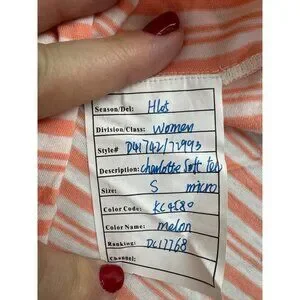 Season/Del: H108
Division/Class: Women
Style# D41742/72993
Description: Charlotte Soft Tee
Size: S micro
Color Code: KC4580
Color Name: melon
Ranking: DC17768
Channel: